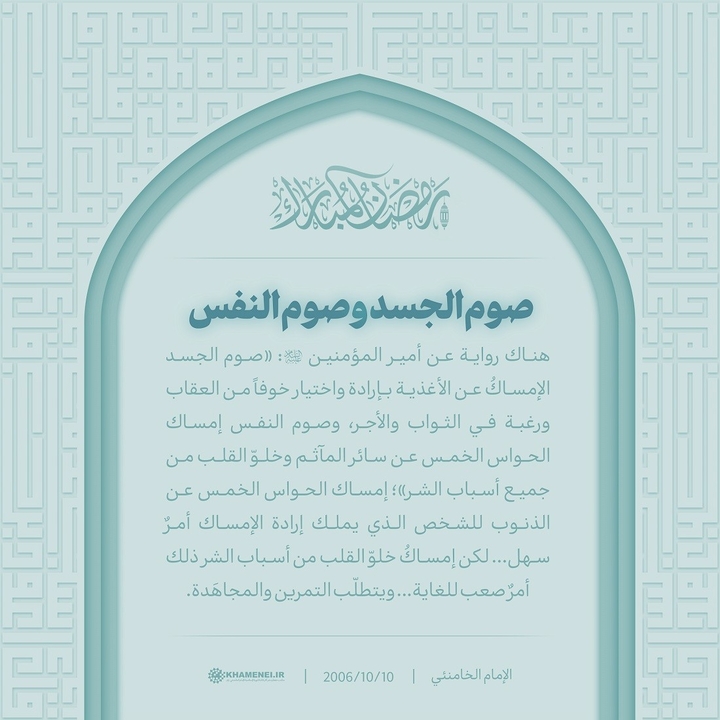 رمضان المبارك
صوم الجسد وصوم النفس
هناك رواية عن أمير المؤمنين : «صوم الجسد
الإمساكُ عن الأغذية بإرادة واختيار خوفاً من العقاب
ورغبة في الثواب والأجر، وصوم النفس إمساك
الحواس الخمس عن سائر المآثم وخلوّ القلب من
جميع أسباب الشر»؛ إمساك الحواس الخمس عن
الذنوب للشخص الذي يملك إرادة الإمساك أمرٌ
سهل... لكن إمساكُ خلوّ القلب من أسباب الشر ذلك
أمرٌ صعب للغاية... ويتطلّب التمرين والمجاهَدة.
الإمام الخامنئي | 2006/10/10 | KHAMENEI.IR